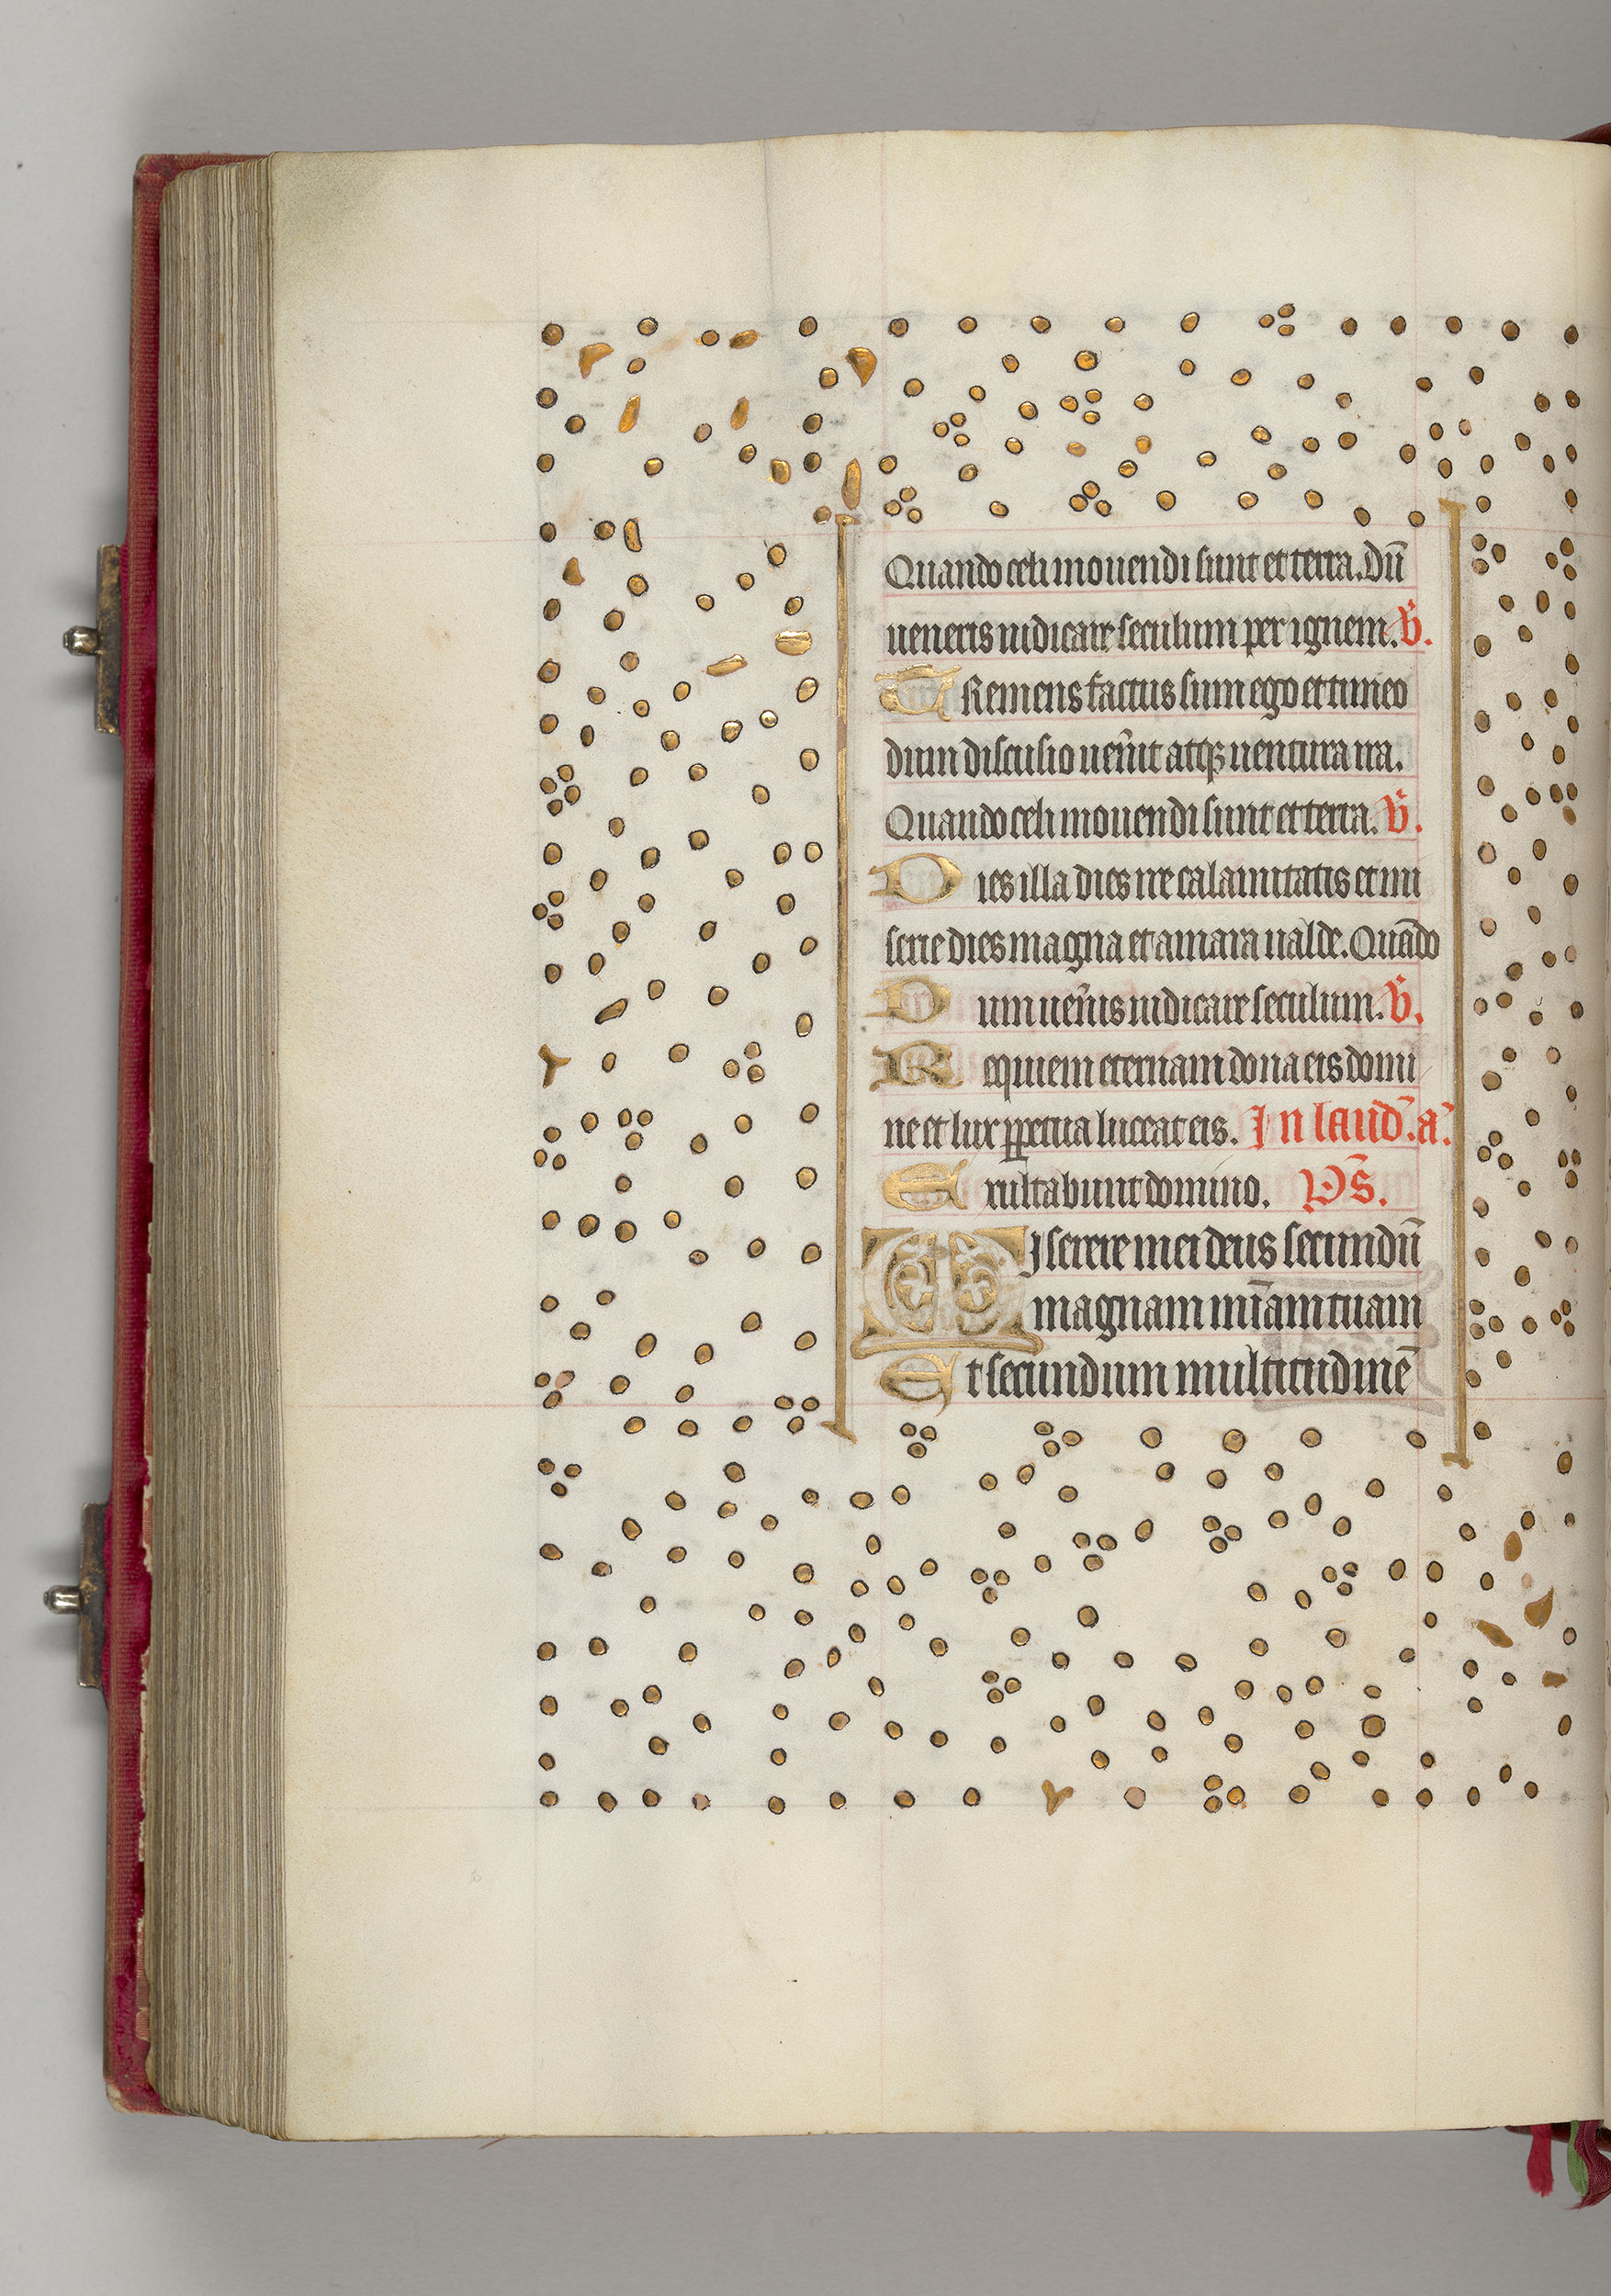 Quando celi mouendi sunt et terra. Dū
ueneris iudicare seculum per ignem. V̄.
TRemens factus sum ego et timeo
dum discusio uen̄it atqꝫ uentura ira.
Quando celi mouendi sunt et terra. V̄.
Dies illa dies ire calamitatis et mi
serie dies magna et amara ualde. Quādo
Dum uen̄is iudicare seculum. V̄.
Requiem eternam dona eis domi
ne et lux ꝑpetua luceat eis. In laud̄. a̅.
Exultabunt domino. Ps̄.
MIserere mei deus secundū
magnam mīam tuam
Et secundum multitudinē